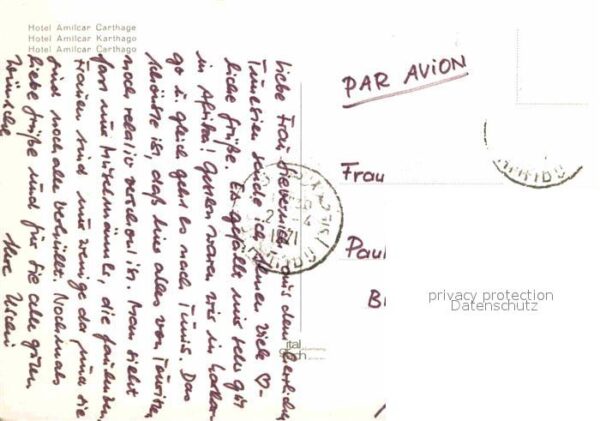 Hotel Amilcar Carthage
Hotel Amilcar Karthago
Hotel Amilcar Carthago
Liebe Frau aus dem herrlichen
Tunesien sende ich Ihnen viele
liche Grüße. Es gefällt mir sehr gut
in Afrika! Gestern waren wir in Kartha
go u. gleich geht es nach Tunis. Das
schönste ist, daß hier alles von Touristen
noch relativ verschont ist. Man sieht
fast nur Männer, die
Frauen sind nur wenige da und die
sind noch alle verhüllt. Nochmals
liebe Grüße und für Sie alle guten
Wünsche
Ihre
PAR AVION
Frau
Paul
privacy protection
Datenschutz